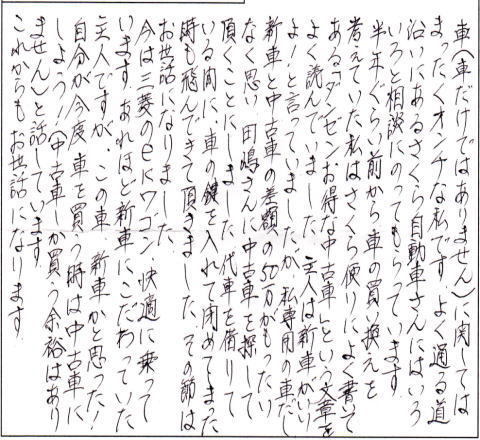 車(車だけではありません)に関しては
まったくオンチな私です。よく通る道
沿いにあるさくら自動車さんにはいろ
いろと相談にのってもらっています。
半年ぐらい前から車の買い換えを
考えていた私はさくら便りによく書いて
ある「ダンゼンお得な中古車」という文章を
よく読んでいました。主人は新車がいい
よ!と言っていましたが、私専用の車だし
新車と中古車の差額の50万がもったい
なく思い田嶋さんに中古車を探して
頂くことにしました。代車を借りて
いる間に、車の鍵を入れて閉めてまった
時も飛んできて頂きました。その節は
お世話になりました。
今は三菱のeKワゴン快適に乗って
います。あれほど新車にこだわっていた
主人ですが、この車、新車かと思った!
自分が今度車を買う時は中古車に
しよう!!(中古車しか買う余裕はあり
ません)と話しています。
これからもお世話になります。